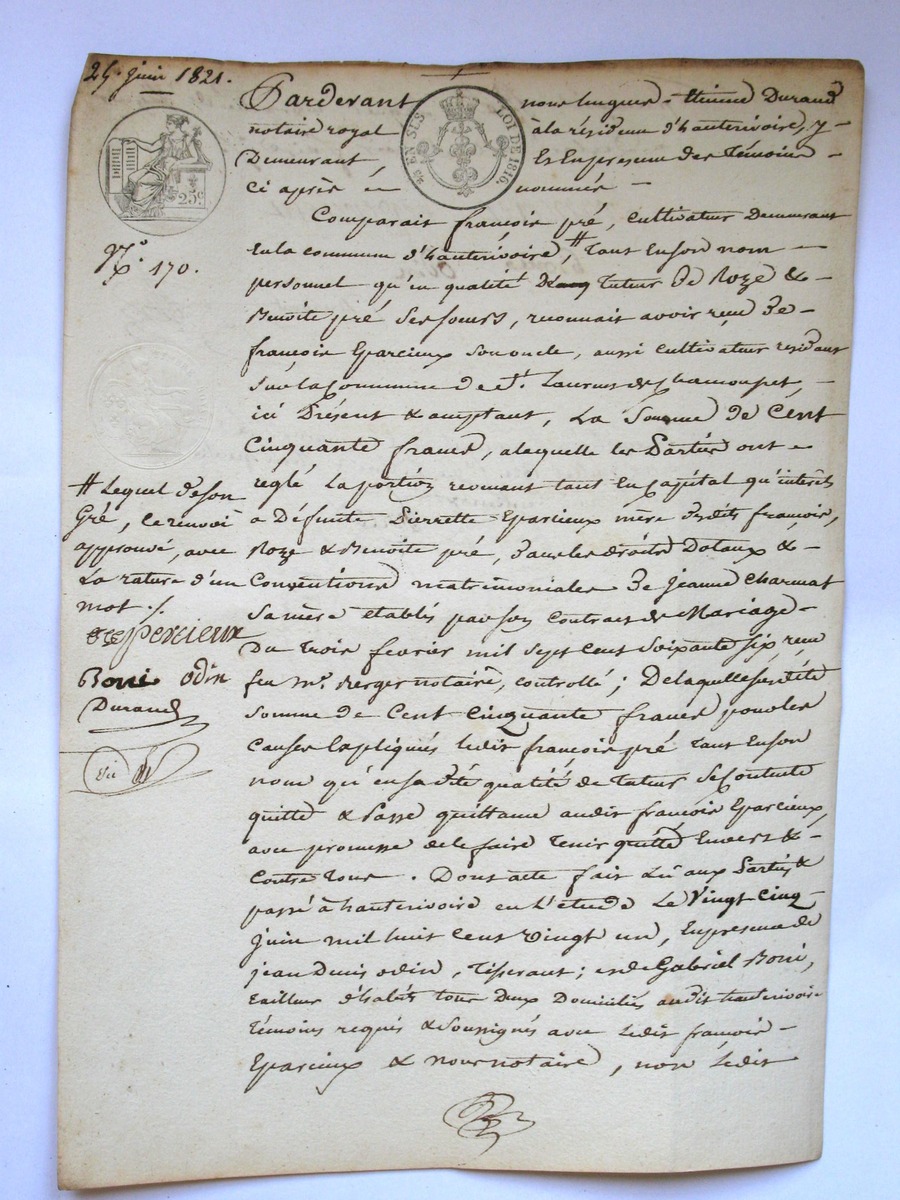 25. juin 1821.
Pardevant nous Étienne Durand
notaire royal à la résidence d'hauterivoire, y
Demeurant, Et En presence des Témoins
Ci après nommés
EN SUS LOI DE 1816.
25c
N.° 170.
Comparait françois pré, cultivateur Demeurant
En la commune d'hauterivoire, # tant En son nom
personnel qu'en qualité Tuteur De Roze &
Benoite pré ses soeurs, reconnait avoir reçu De
françois Eparcieux son oncle, aussi cultivateur residant
Sur la Commune de St. Laurent de Chamousset,
ici Présent & acceptant, La Somme de Cent
Cinquante francs, a laquelle les Parties ont
reglé La portion revenant tant En capital qu'interêts
a Défunte Pierrette Eparcieux mère desdits françois,
Roze & Benoite pré, dans les droits Dotaux &
Conventions matrimoniales De jeanne Charmat
Sa mère etablis par son Contrat de Mariage
Du trois fevrier mil Sept Cent Soixante Six reçu
feu Me. Berger notaire, controllé; De laquelle susdite
Somme de Cent Cinquante francs pour les
Causes Expliqués ledit françois pré Tant En son
nom qu'en sa dite qualité de Tuteur Se Contente
quitte & Passe quittance audit françois Eparcieux,
avec promesse de le faire Tenir quitte Envers &
Contre Tous. Dont acte fait Lu aux Parties &
passé à hauterivoire en L'etude Le Vingt Cinq
juin mil huit cent Vingt un, En presence de
jean Denis odin, Tisserant; et de Gabriel Boni,
tailleur d'habits tous Deux Domiciliés audit hauterivoire
témoins requis & Soussignés avec Ledit françois
Eparcieux & nous notaire, non Ledit
# Lequel de son
Gré, le renvoi
approuvé, avec
La rature d'un
mot ./.
Eparcieux
Boni odin
Durand